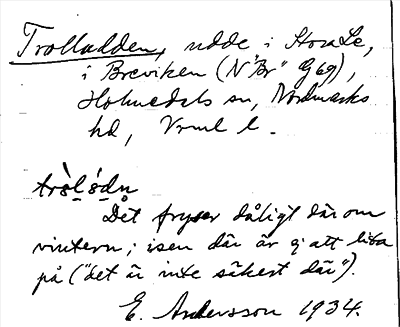 Trolludden, udde i Stora Le,
i Breviken (N "Br" G69),
Holmedals sn, Nordmarks
hd, Vrml l.
trò̀l ś̀dn
Det fryser dåligt där om
vintern; isen där är ej att lita
på ("det är inte säkert där").
E. Andersson 1934.